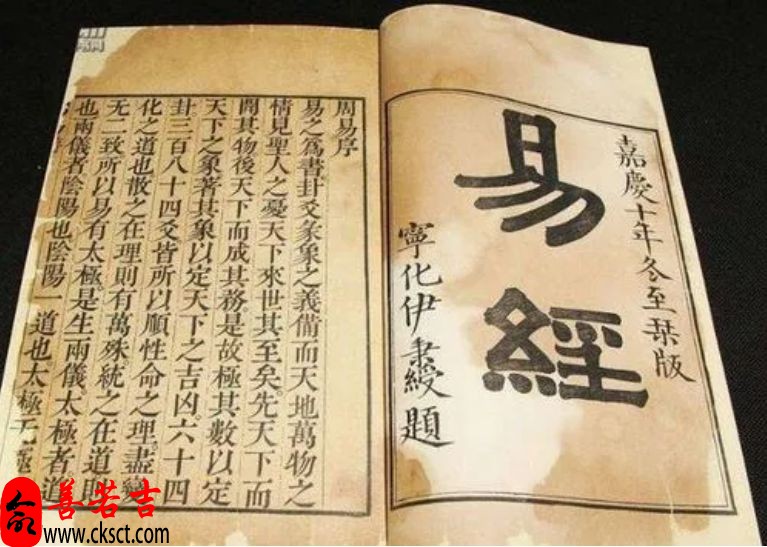 嘉慶十年冬至栞版
易經
寧化伊秉綬題
周易序
易之為書卦爻彖象之義備而天地萬物之
情見聖人之憂天下來世其至矣先天下而
開其物後天下而成其務是故極其數以定
天下之象著其象以定天下之吉凶六十四
卦三百八十四爻皆所以順性命之理盡變
化之道也散之在理則有萬殊統之在道則
无二致所以易有太極是生兩儀太極者道
也兩儀者陰陽也陰陽一道也太極无極
善若吉
www.cksct.com